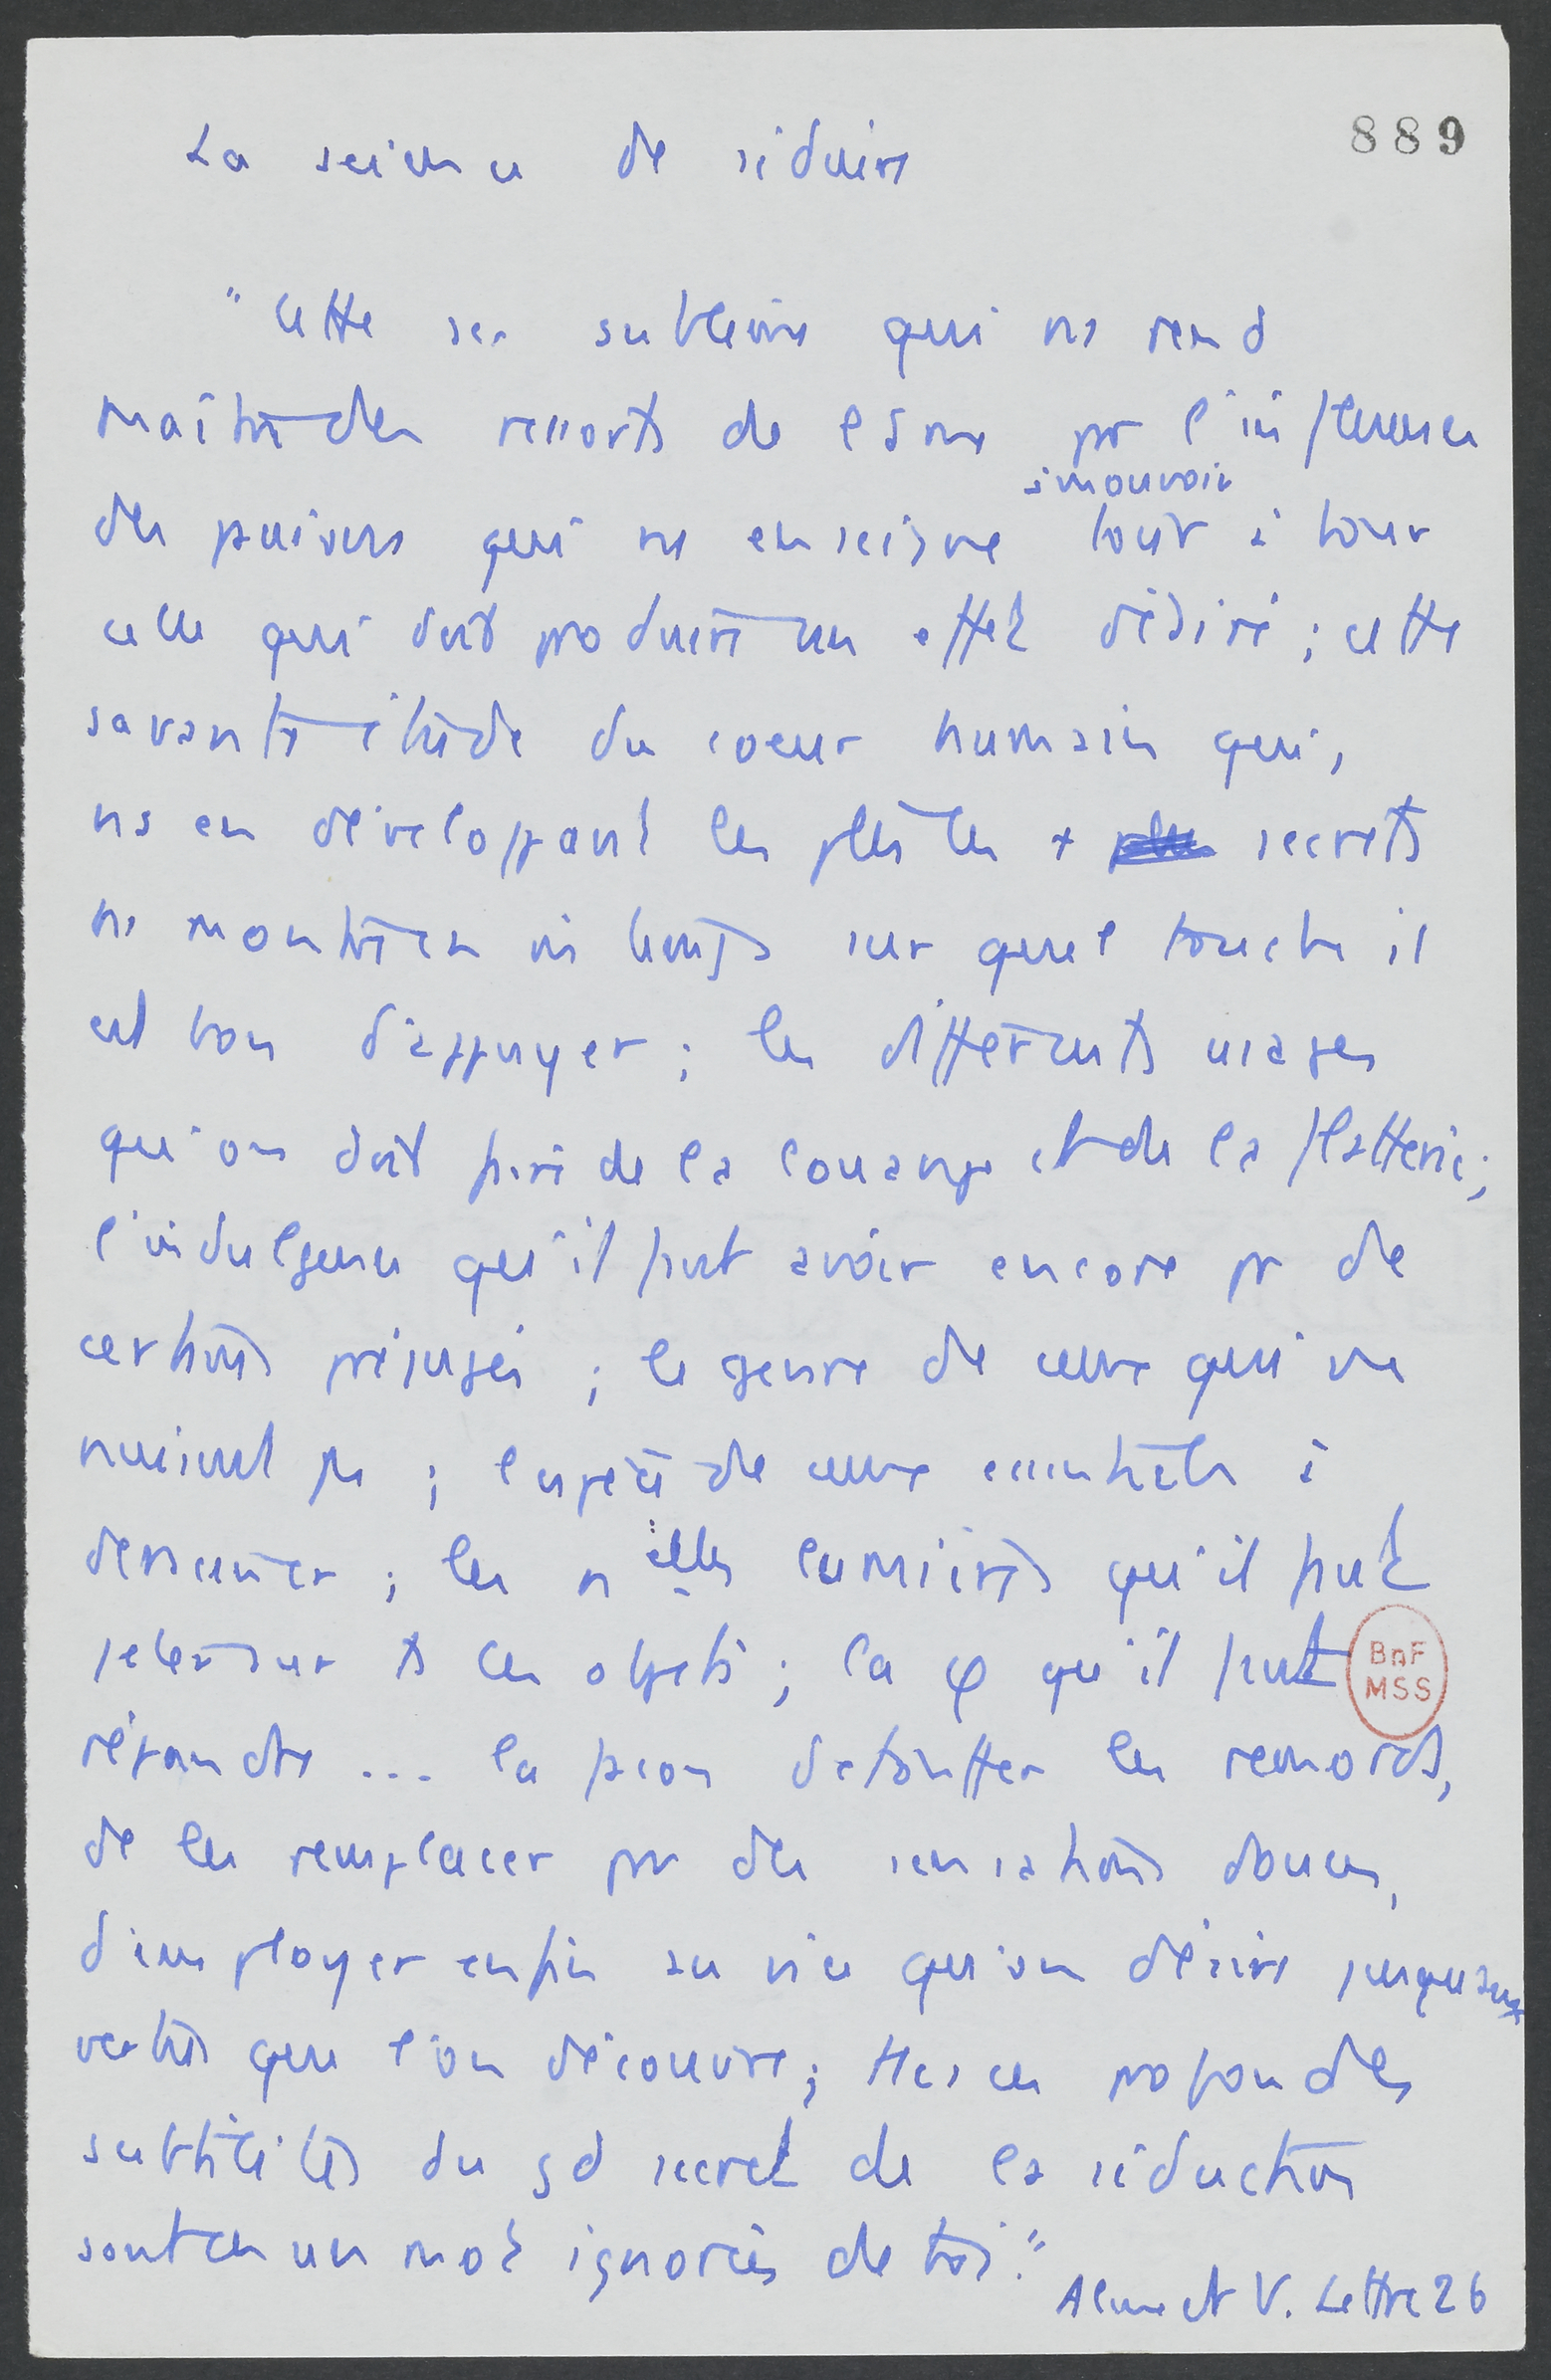 889
La science de séduire
"Cette sce sublime qui ns rend
maître des ressorts de l'âme pr l'influence
des passions qui ns enseigne
émouvoir
tour à tour
celle qui doit produire un effet désiré ; cette
savante étude du coeur humain qui,
ns en développant les plis les + secrets
ns montre en mê temps sur quel touche il
est bon d'appuyer ; les différents usages
qu'on doit faire de la louange et de la flatterie ;
l'indulgence qu'il faut avoir encore pr de
certains préjugés ; le genre de ceux qui ne
nuisent pas ; l'espèce de ceux essentiels à
déraciner ; les nelles lumières qu'il faut
jeter sur ts ces objets ; la φ qu'il faut
BnF
MSS
répandre ... la façon d'étouffer les remords,
de les remplacer pr des sensations douces,
d'employer enfin au vice qu'on désire jusqu'aux
vertus que l'on découvre ; ttes ces profondes
subtilités du gd secret de la séduction
sont en un mot ignorées de toi."
Aline et V. Lettre 26